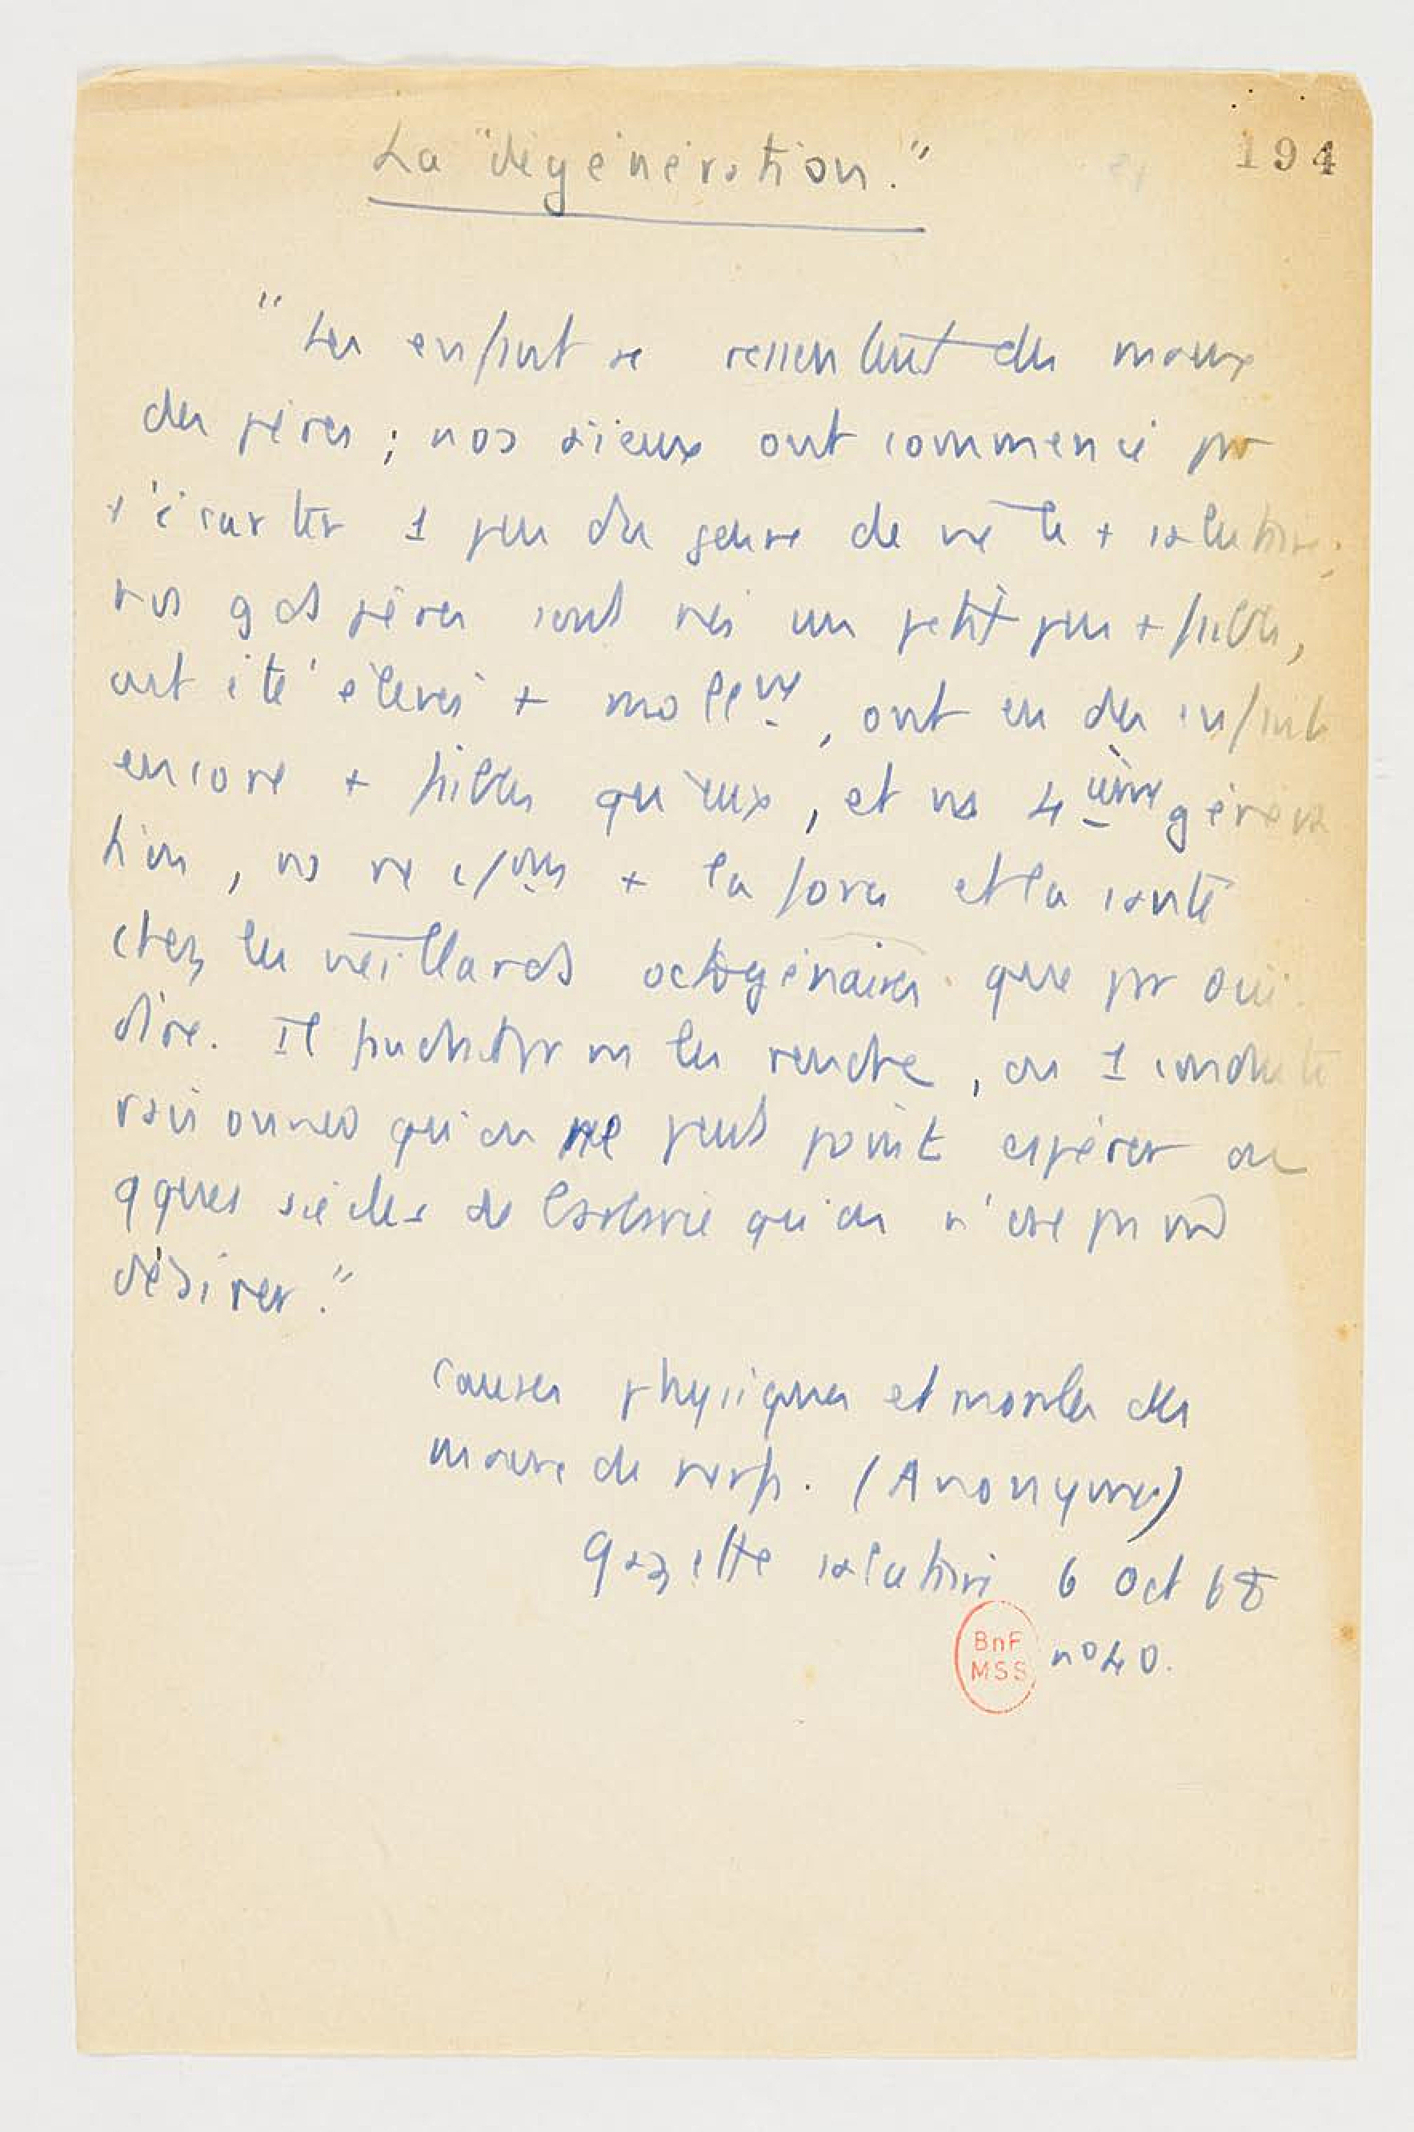 194
La "dégénération."
" Les enfants se ressentent des maux
des pères ; nos aïeux ont commencé pr
s'écarter 1 peu du genre de vie le + salutaire ;
nos gds pères sont nés un petit peu + faibles,
ont été élevés + mollemt, ont eu des enfants
encore + faibles qu'eux, et ns 4ième généra
tion, ns ne c/ons + la force et la santé
chez les vieillards octogénaires que pr oui
dire. Il pr ns les rendre, ou 1 conduite
raisonnée qu'on ne peut point espérer ou
qques siècles de barbarie qu'on n'ose pas
désirer."
Causes physiques et morales des
maux de nerfs. (Anonyme)
Gazette salutaire 6 Oct 68
BnF
MSS
n° 40.